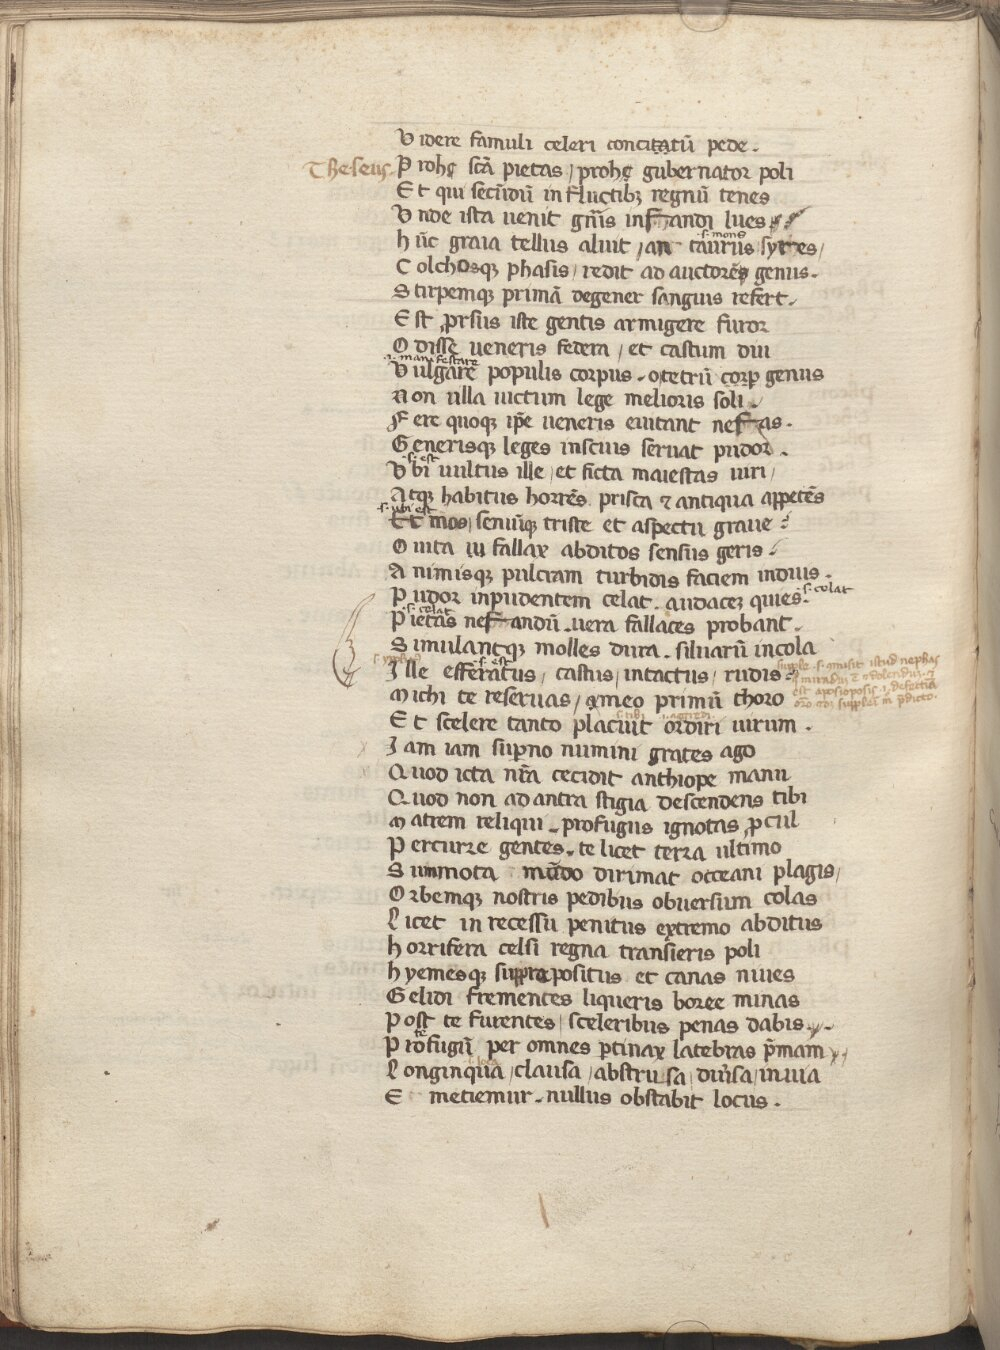 Videre famuli celeri concitatũ pede.
Theseus. Prohe scã pietas / prohe gubernator poli
Et qui secũdũ in fluctibꝫ regnũ tenes
Vnde ista uenit gñis infandi lues
s. mons
hũc graia tellus aluit / an taurus syttes /
Colchosqꝫ phasis / redit ad auctores genus.
Stirpemqꝫ primã degener sanguis refert.
Est ꝓrsus iste gentis armigere furor
Odisse ueneris federa / et castum diu
.i. manifestare
Vulgare populis corpus. o tetrũ corꝑ genus
Non ulla uictum lege melioris soli.
Fere quoqꝫ ip̃e ueneris euitant nefas.
Generisqꝫ leges inscius seruat pudor.
s. est
Vbi uultus ille / et ficta maiestas uiri /
Atqꝫ habitus horrẽs prisca ⁊ antiqua appetẽs
s. ubi est
Et mos / seniũqꝫ triste et aspectu graue
O uita tu fallax abditos sensus geris.
Animisqꝫ pulcram turbidis faciem induis.
Pudor inpudentem celat. audacem quies. s. celat
s. celat
Pietas nefandũ. uera fallaces probant.
Simulantqꝫ molles dura. siluarũ incola
s. est
Ille efferatus / castus / intactus / rudis
Michi te reseruas / a meo primũ thoro
s. tibi
Et scelere tanto placuit ordiri uirum.
Iam iam suꝑno numini grates ago
Quod icta nr̃a cecidit anthiope manu
Quod non ad antra stigia descendens tibi
Matrem reliqui. profugus ignotas ꝓcul
Percurre gentes. te licet terra ultimo
Summota mũdo dirimat occeani plagis /
Orbemqꝫ nostris pedibus obuersum colas
Licet in recessu penitus extremo abditus
horrifera celsi regna transieris poli
hyemesqꝫ suprapositus et canas niues
Gelidi frementes liqueris boree minas
Post te furentes / sceleribus penas dabis.
te
Profugũ per omnes ꝑtinax latebras p̃mam
s. loca
Longinqua / clausa / abstrusa / diũsa / inuia
E metiemur. nullus obstabit locus.